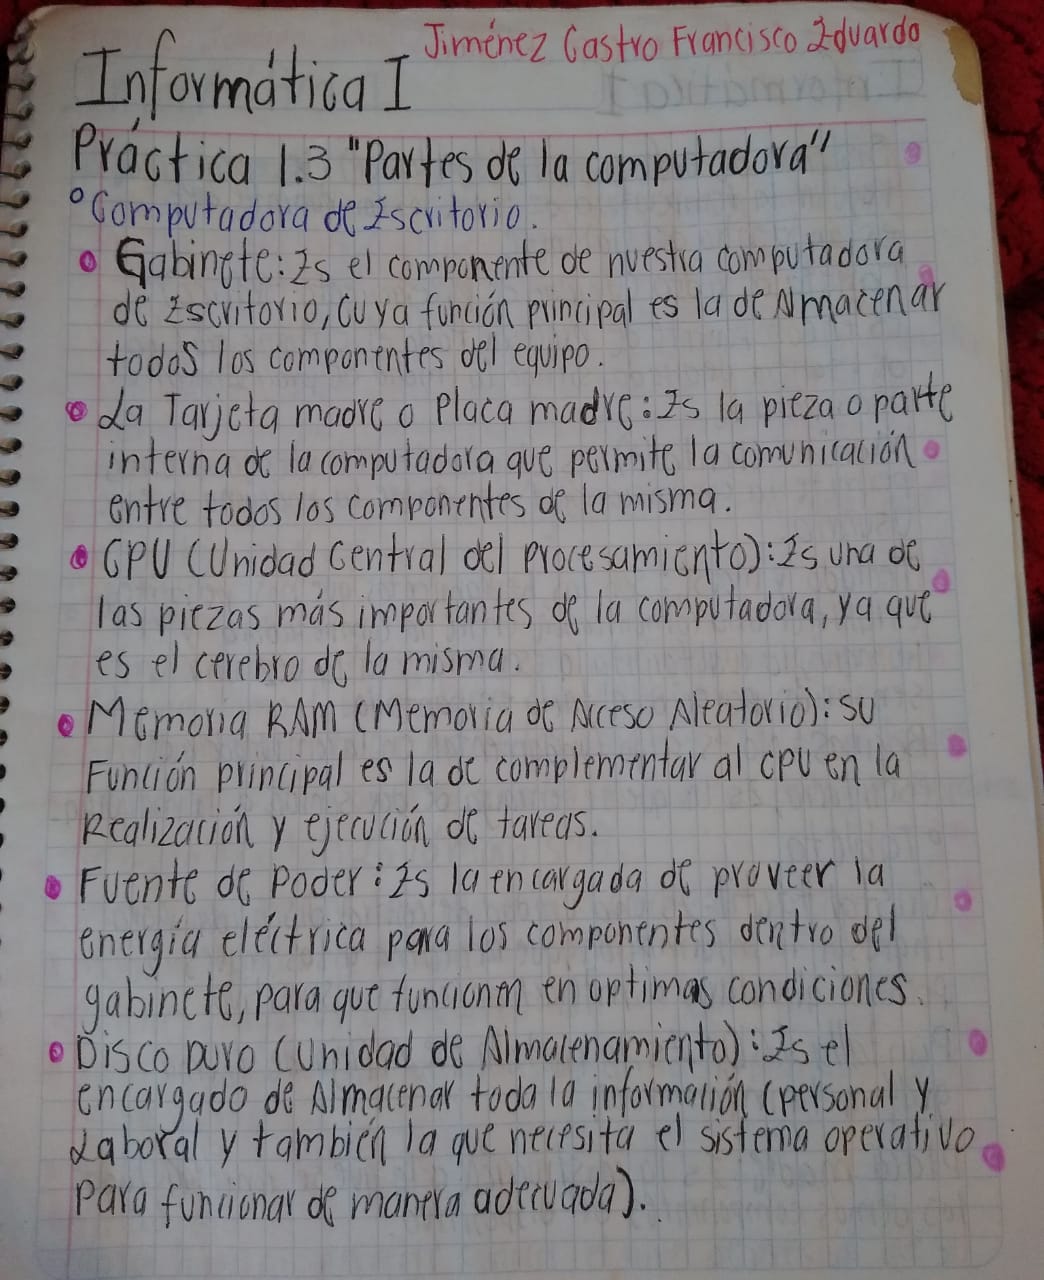 Jiménez Castro Francisco Eduardo
Informática I
Práctica 1.3 "Partes de la computadora"
°Computadora de Escritorio.
• Gabinete: Es el componente de nuestra computadora
de Escritorio, cuya función principal es la de Almacenar
todos los componentes del equipo.
• La Tarjeta madre o Placa madre: Es la pieza o parte
interna de la computadora que permite la comunicación
entre todos los componentes de la misma.
• CPU (Unidad Central del Procesamiento): Es una de
las piezas más importantes de la computadora, ya que
es el cerebro de la misma.
• Memoria RAM (Memoria de Acceso Aleatorio): su
Función principal es la de complementar al CPU en la
Realización y ejecución de tareas.
• Fuente de Poder: Es la encargada de proveer la
energía eléctrica para los componentes dentro del
gabinete, para que funcionen en optimas condiciones.
• Disco Duro (Unidad de Almacenamiento): Es el
encargado de Almacenar toda la información (personal y
Laboral y también la que necesita el sistema operativo
para funcionar de manera adecuada).